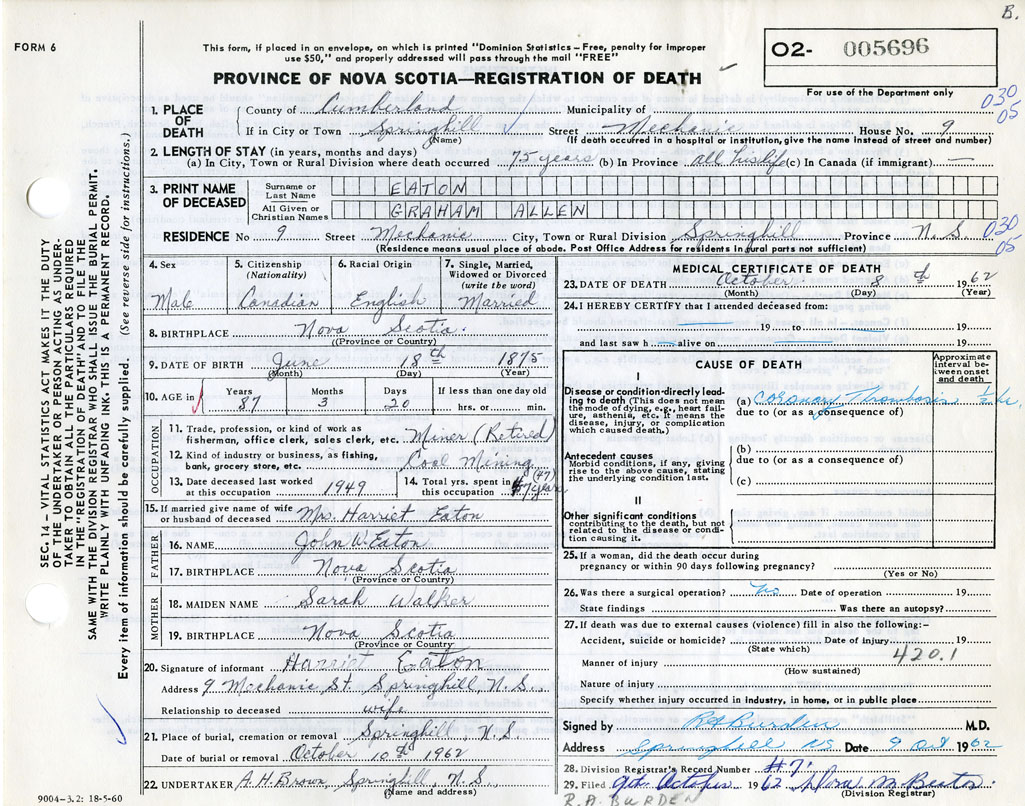 B.
FORM 6
This form, if placed in an envelope, on which is printed "Dominion Statistics – Free, penalty for improper
use $50," and properly addressed will pass through the mail "FREE"
PROVINCE OF NOVA SCOTIA—REGISTRATION OF DEATH
O2- 005696
For use of the Department only
030
05
1. PLACE OF DEATH
County of Cumberland Municipality of
If in City or Town Springhill Street Mechanic House No. 9
(Name) (If death occurred in a hospital or institution, give the name instead of street and number)
2. LENGTH OF STAY (in years, months and days)
(a) In City, Town or Rural Division where death occurred 75 years (b) In Province all his life (c) In Canada (if immigrant) —
3. PRINT NAME OF DECEASED
Surname or Last Name EATON
All Given or Christian Names GRAHAM ALLEN
RESIDENCE No 9 Street Mechanic City, Town or Rural Division Springhill Province N.S.
(Residence means usual place of abode. Post Office Address for residents in rural parts not sufficient)
030
05
4. Sex
Male
5. Citizenship (Nationality)
Canadian
6. Racial Origin
English
7. Single, Married, Widowed or Divorced (write the word)
Married
8. BIRTHPLACE Nova Scotia
(Province or Country)
9. DATE OF BIRTH June 18th 1875
(Month) (Day) (Year)
10. AGE in Years Months Days If less than one day old
87 3 20 hrs. or min.
OCCUPATION
11. Trade, profession, or kind of work as
fisherman, office clerk, sales clerk, etc. Miner (Retired)
12. Kind of industry or business, as fishing,
bank, grocery store, etc. Coal Mining
13. Date deceased last worked
at this occupation 1949
14. Total yrs. spent in
this occupation (47) years
15. If married give name of wife
or husband of deceased Mrs. Harriet Eaton
FATHER
16. NAME John W. Eaton
17. BIRTHPLACE Nova Scotia
(Province or Country)
MOTHER
18. MAIDEN NAME Sarah Walker
19. BIRTHPLACE Nova Scotia
(Province or Country)
20. Signature of informant Harriet Eaton
Address 9 Mechanic St. Springhill, N.S.
Relationship to deceased wife
21. Place of burial, cremation or removal Springhill N.S.
Date of burial or removal October 10th 1962
22. UNDERTAKER A.H. Brown, Springhill, N.S.
(Name and address)
9004–3.2: 18-5-60
MEDICAL CERTIFICATE OF DEATH
23. DATE OF DEATH October 8th 1962
(Month) (Day) (Year)
24. I HEREBY CERTIFY that I attended deceased from:
19 to 19
and last saw h alive on 19
CAUSE OF DEATH
Approximate interval between onset and death
I
Disease or condition directly leading
to death (This does not mean
the mode of dying, e.g., heart failure,
asthenia, etc. It means the
disease, injury, or complication
which caused death.)
(a) Coronary Thrombosis ½ hr.
due to (or as a consequence of)
Antecedent causes
Morbid conditions, if any, giving
rise to the above cause, stating
the underlying condition last.
(b)
due to (or as a consequence of)
(c)
II
Other significant conditions
contributing to the death, but not
related to the disease or condition
causing it.
25. If a woman, did the death occur during
pregnancy or within 90 days following pregnancy?
(Yes or No)
26. Was there a surgical operation? No Date of operation 19
State findings Was there an autopsy?
27. If death was due to external causes (violence) fill in also the following:–
Accident, suicide or homicide? Date of injury 19
(State which)
420.1
Manner of injury
(How sustained)
Nature of injury
Specify whether injury occurred in industry, in home, or in public place
Signed by RA Burden M.D.
Address Springhill NS Date 9 Oct 1962
28. Division Registrar's Record Number #71
29. Filed 9th October 1962
(Division Registrar)
R.A. BURDEN
SEC. 14 – VITAL STATISTICS ACT MAKES IT THE DUTY
OF THE UNDERTAKER OR PERSON ACTING AS UNDERTAKER
TO OBTAIN ALL THE PARTICULARS REQUIRED
IN THE "REGISTRATION OF DEATH" AND TO FILE THE
SAME WITH THE DIVISION REGISTRAR WHO SHALL ISSUE THE BURIAL PERMIT.
WRITE PLAINLY WITH UNFADING INK. THIS IS A PERMANENT RECORD.
Every item of information should be carefully supplied. (See reverse side for instructions.)